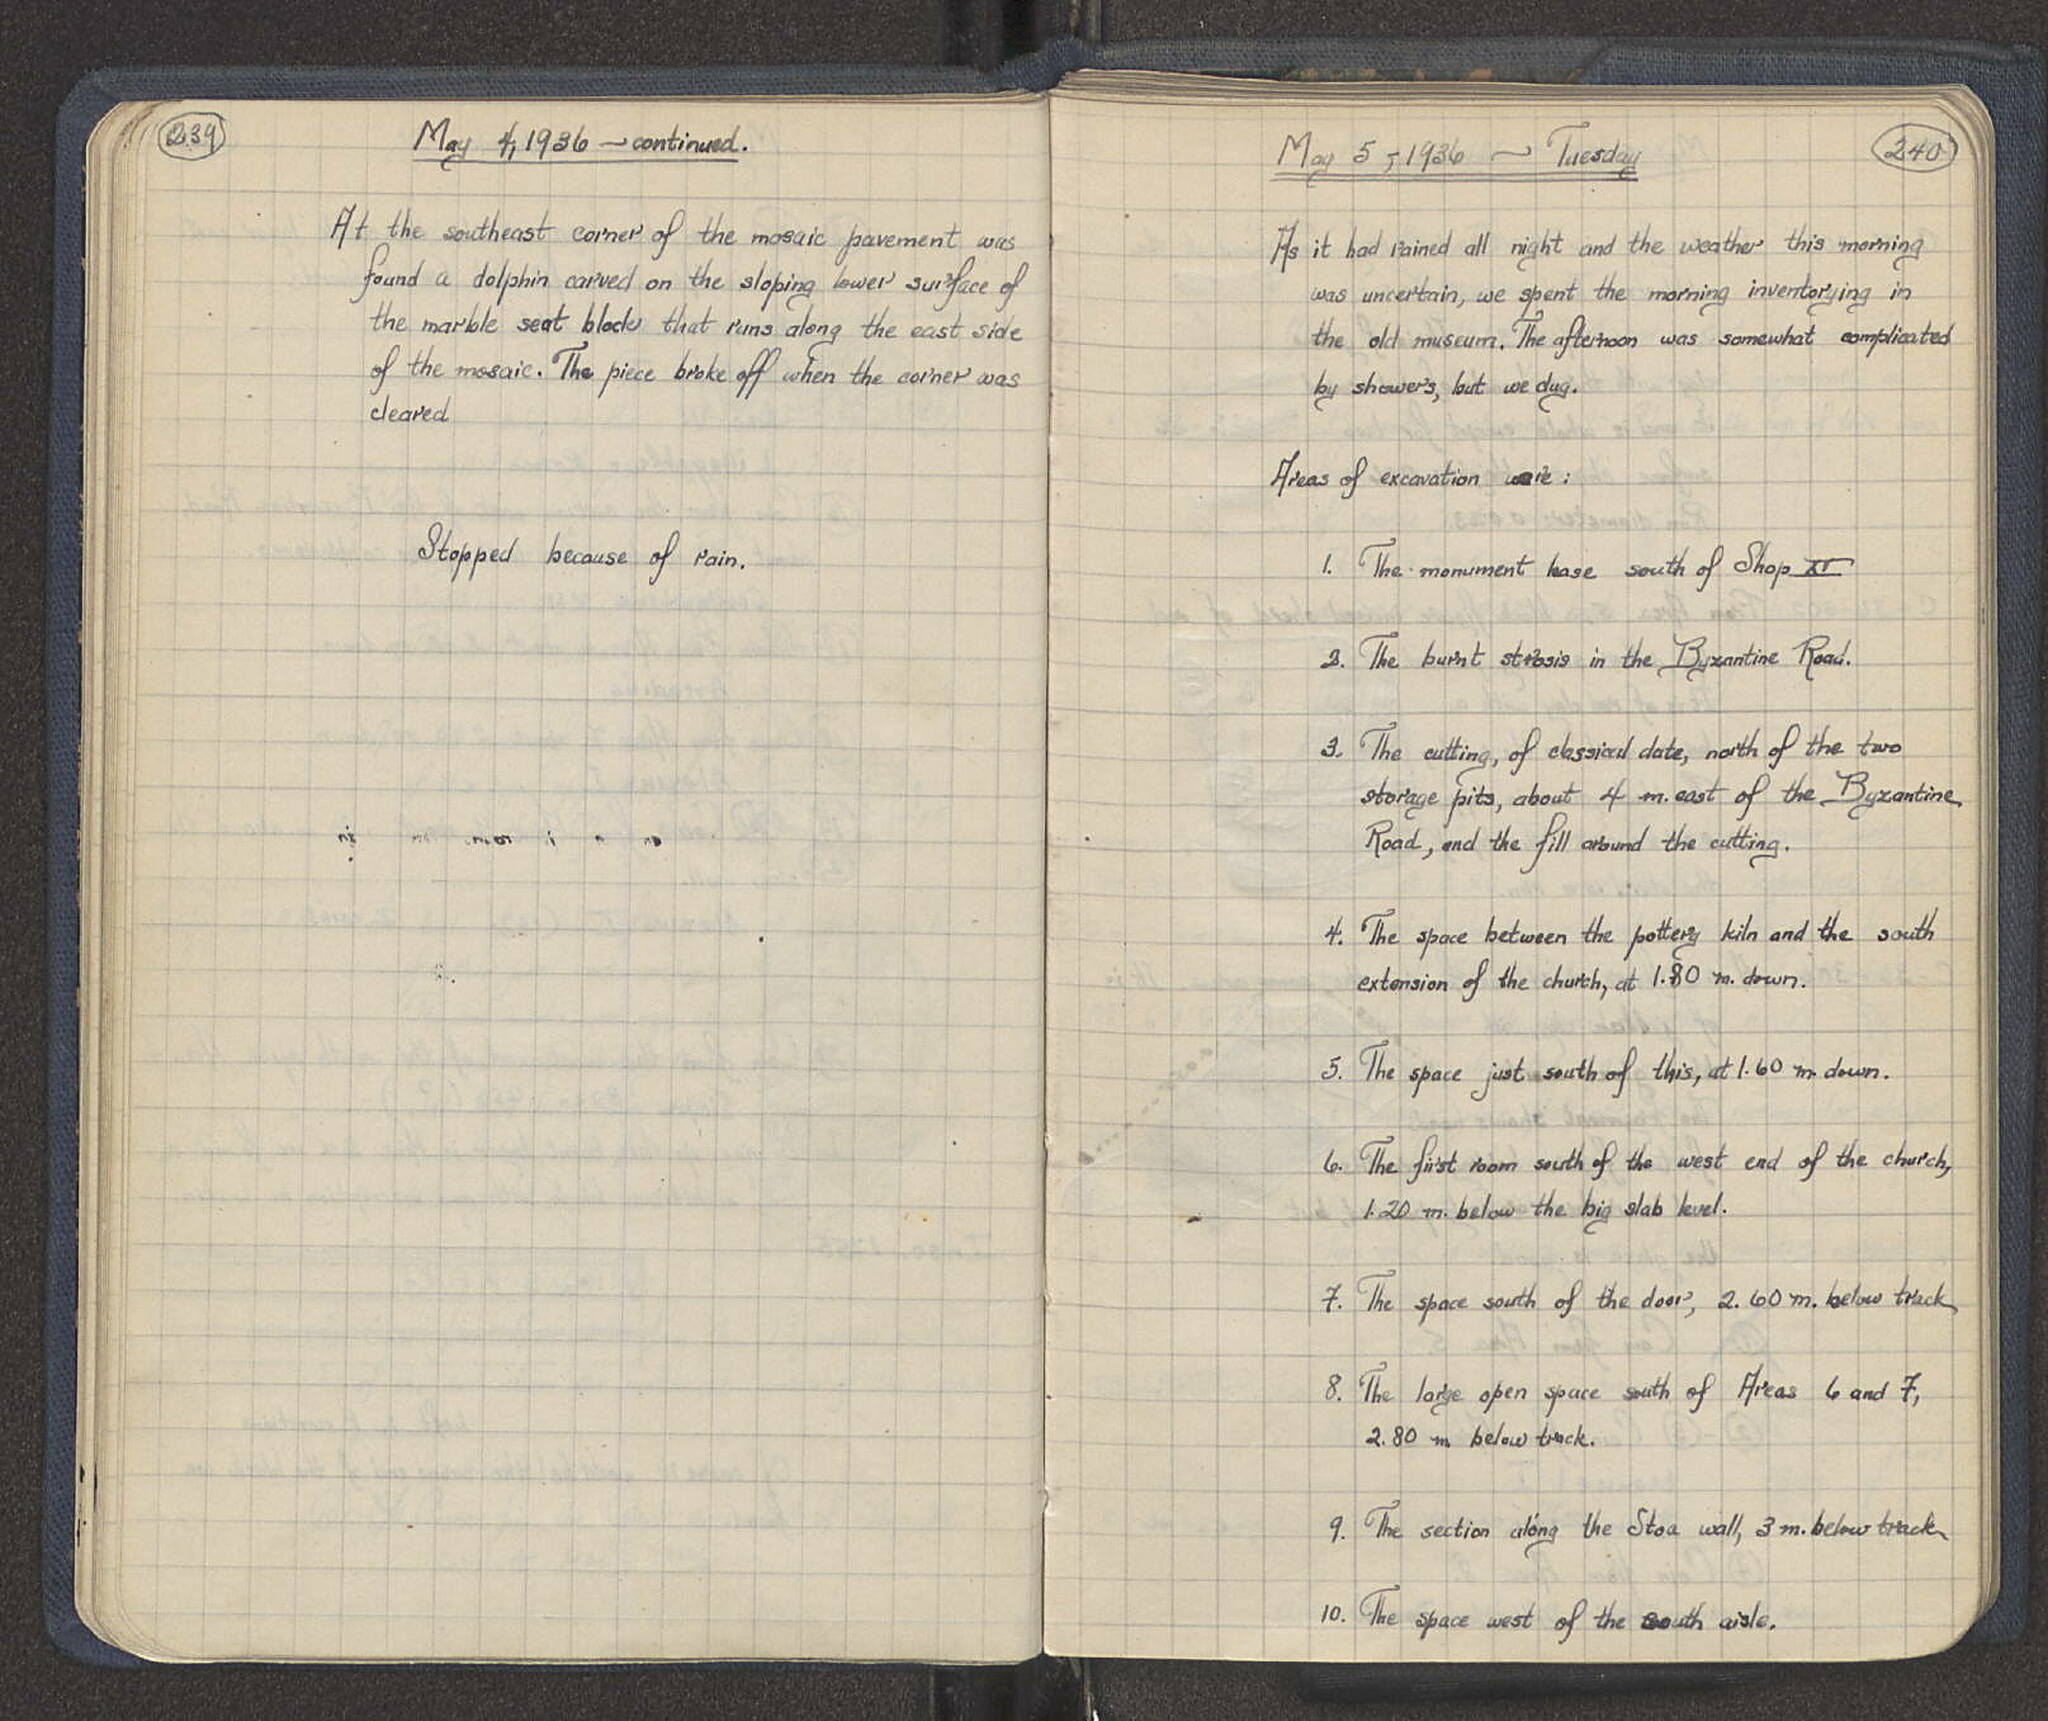 239
May 4, 1936 — continued.
At the southeast corner of the mosaic pavement was
found a dolphin carved on the sloping lower surface of
the marble seat block that runs along the east side
of the mosaic. The piece broke off when the corner was
cleared
Stopped because of rain.
240
May 5, 1936 — Tuesday
As it had rained all night and the weather this morning
was uncertain, we spent the morning inventorying in
the old museum. The afternoon was somewhat complicated
by showers, but we dug.
Areas of excavation were:
1. The monument base south of Shop XV
2. The burnt strosis in the Byzantine Road.
3. The cutting, of classical date, north of the two
storage pits, about 4 m. east of the Byzantine
Road, and the fill around the cutting.
4. The space between the pottery kiln and the south
extension of the church, at 1.80 m. down.
5. The space just south of this, at 1.60 m. down.
6. The first room south of the west end of the church,
1.20 m. below the big slab level.
7. The space south of the door, 2.60 m. below track
8. The large open space south of Areas 6 and 7,
2.80 m. below track.
9. The section along the Stoa wall, 3 m. below track
10. The space west of the south aisle.